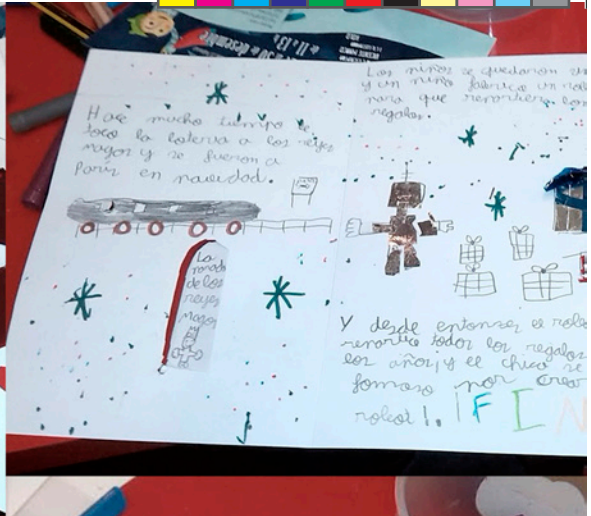 de 11 a 13
a 30 de desembre
Hace mucho tiempo le
toco la loteria a los reyes
magos y se fueron a
París en navidad.
La
de los
reyes
magos
Los niños se quedaron
y un niño fabrico un
para que repartiera los
regalos.
Y desde entonses el
repartio todos los regalos
los años, y el chico se
famoso por crear
robot!. ¡FIN